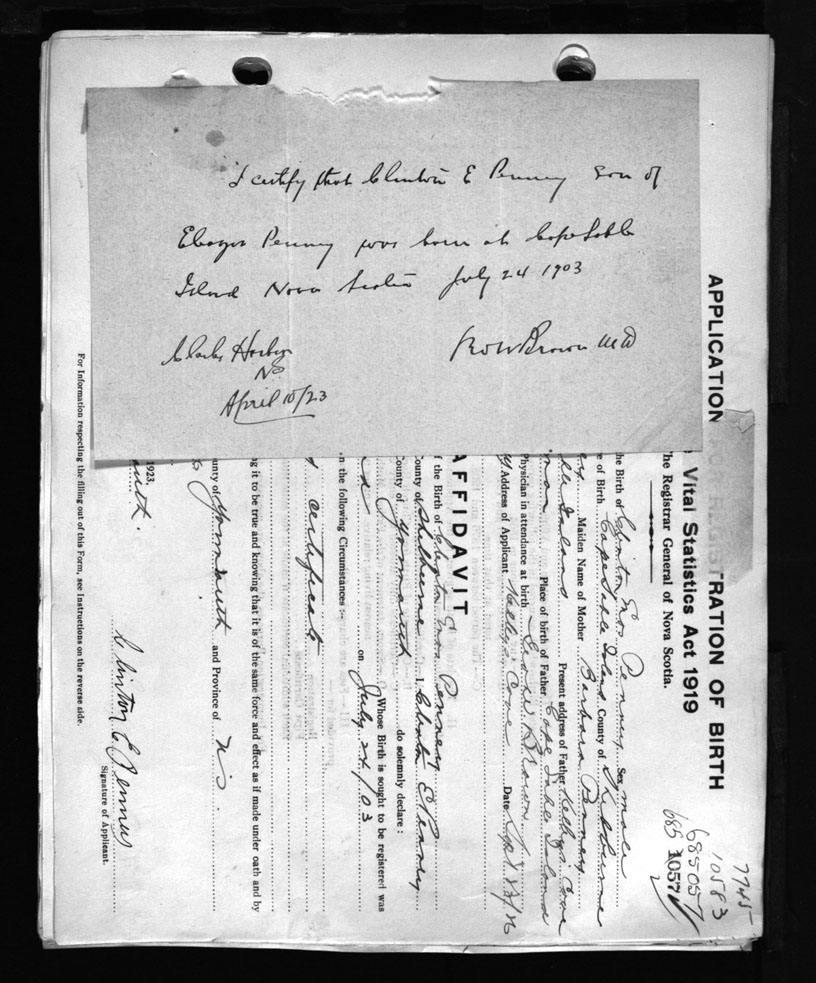 I certify that Clinton E Penney Son of
Eleazer Penney was born at Cape Sable
Island Nova Scotia July 24 1903
Clarks Harbor
NS
April 10/23
Brown MD
APPLICATION FOR REGISTRATION OF BIRTH
Vital Statistics Act 1919
The Registrar General of Nova Scotia.
7745
10583
685057
685 1057
the Birth of Clinton Enos Penney Sex male
of Birth Cape Sable Island County of Shelburne
Maiden Name of Mother Barbara Penney
Island Present address of Father Kellys Cove
Place of birth of Father Cape Sable Island
Physician in attendance at birth Brown
Address of Applicant Kellys Cove Date
AFFIDAVIT
f the Birth of Clinton Enos Penney
County of Shelburne I, Clinton E Penney
County of Yarmouth do solemnly declare :
Whose Birth is sought to be registered was
on July 24/03
n the following Circumstances :-
certificate
g it to be true and knowing that it is of the same force and effect as if made under oath and by
unty of Yarmouth and Province of NS.
1923.
Clinton E Penney
Signature of Applicant.
For Information respecting the filling out of this Form, see Instructions on the reverse side.